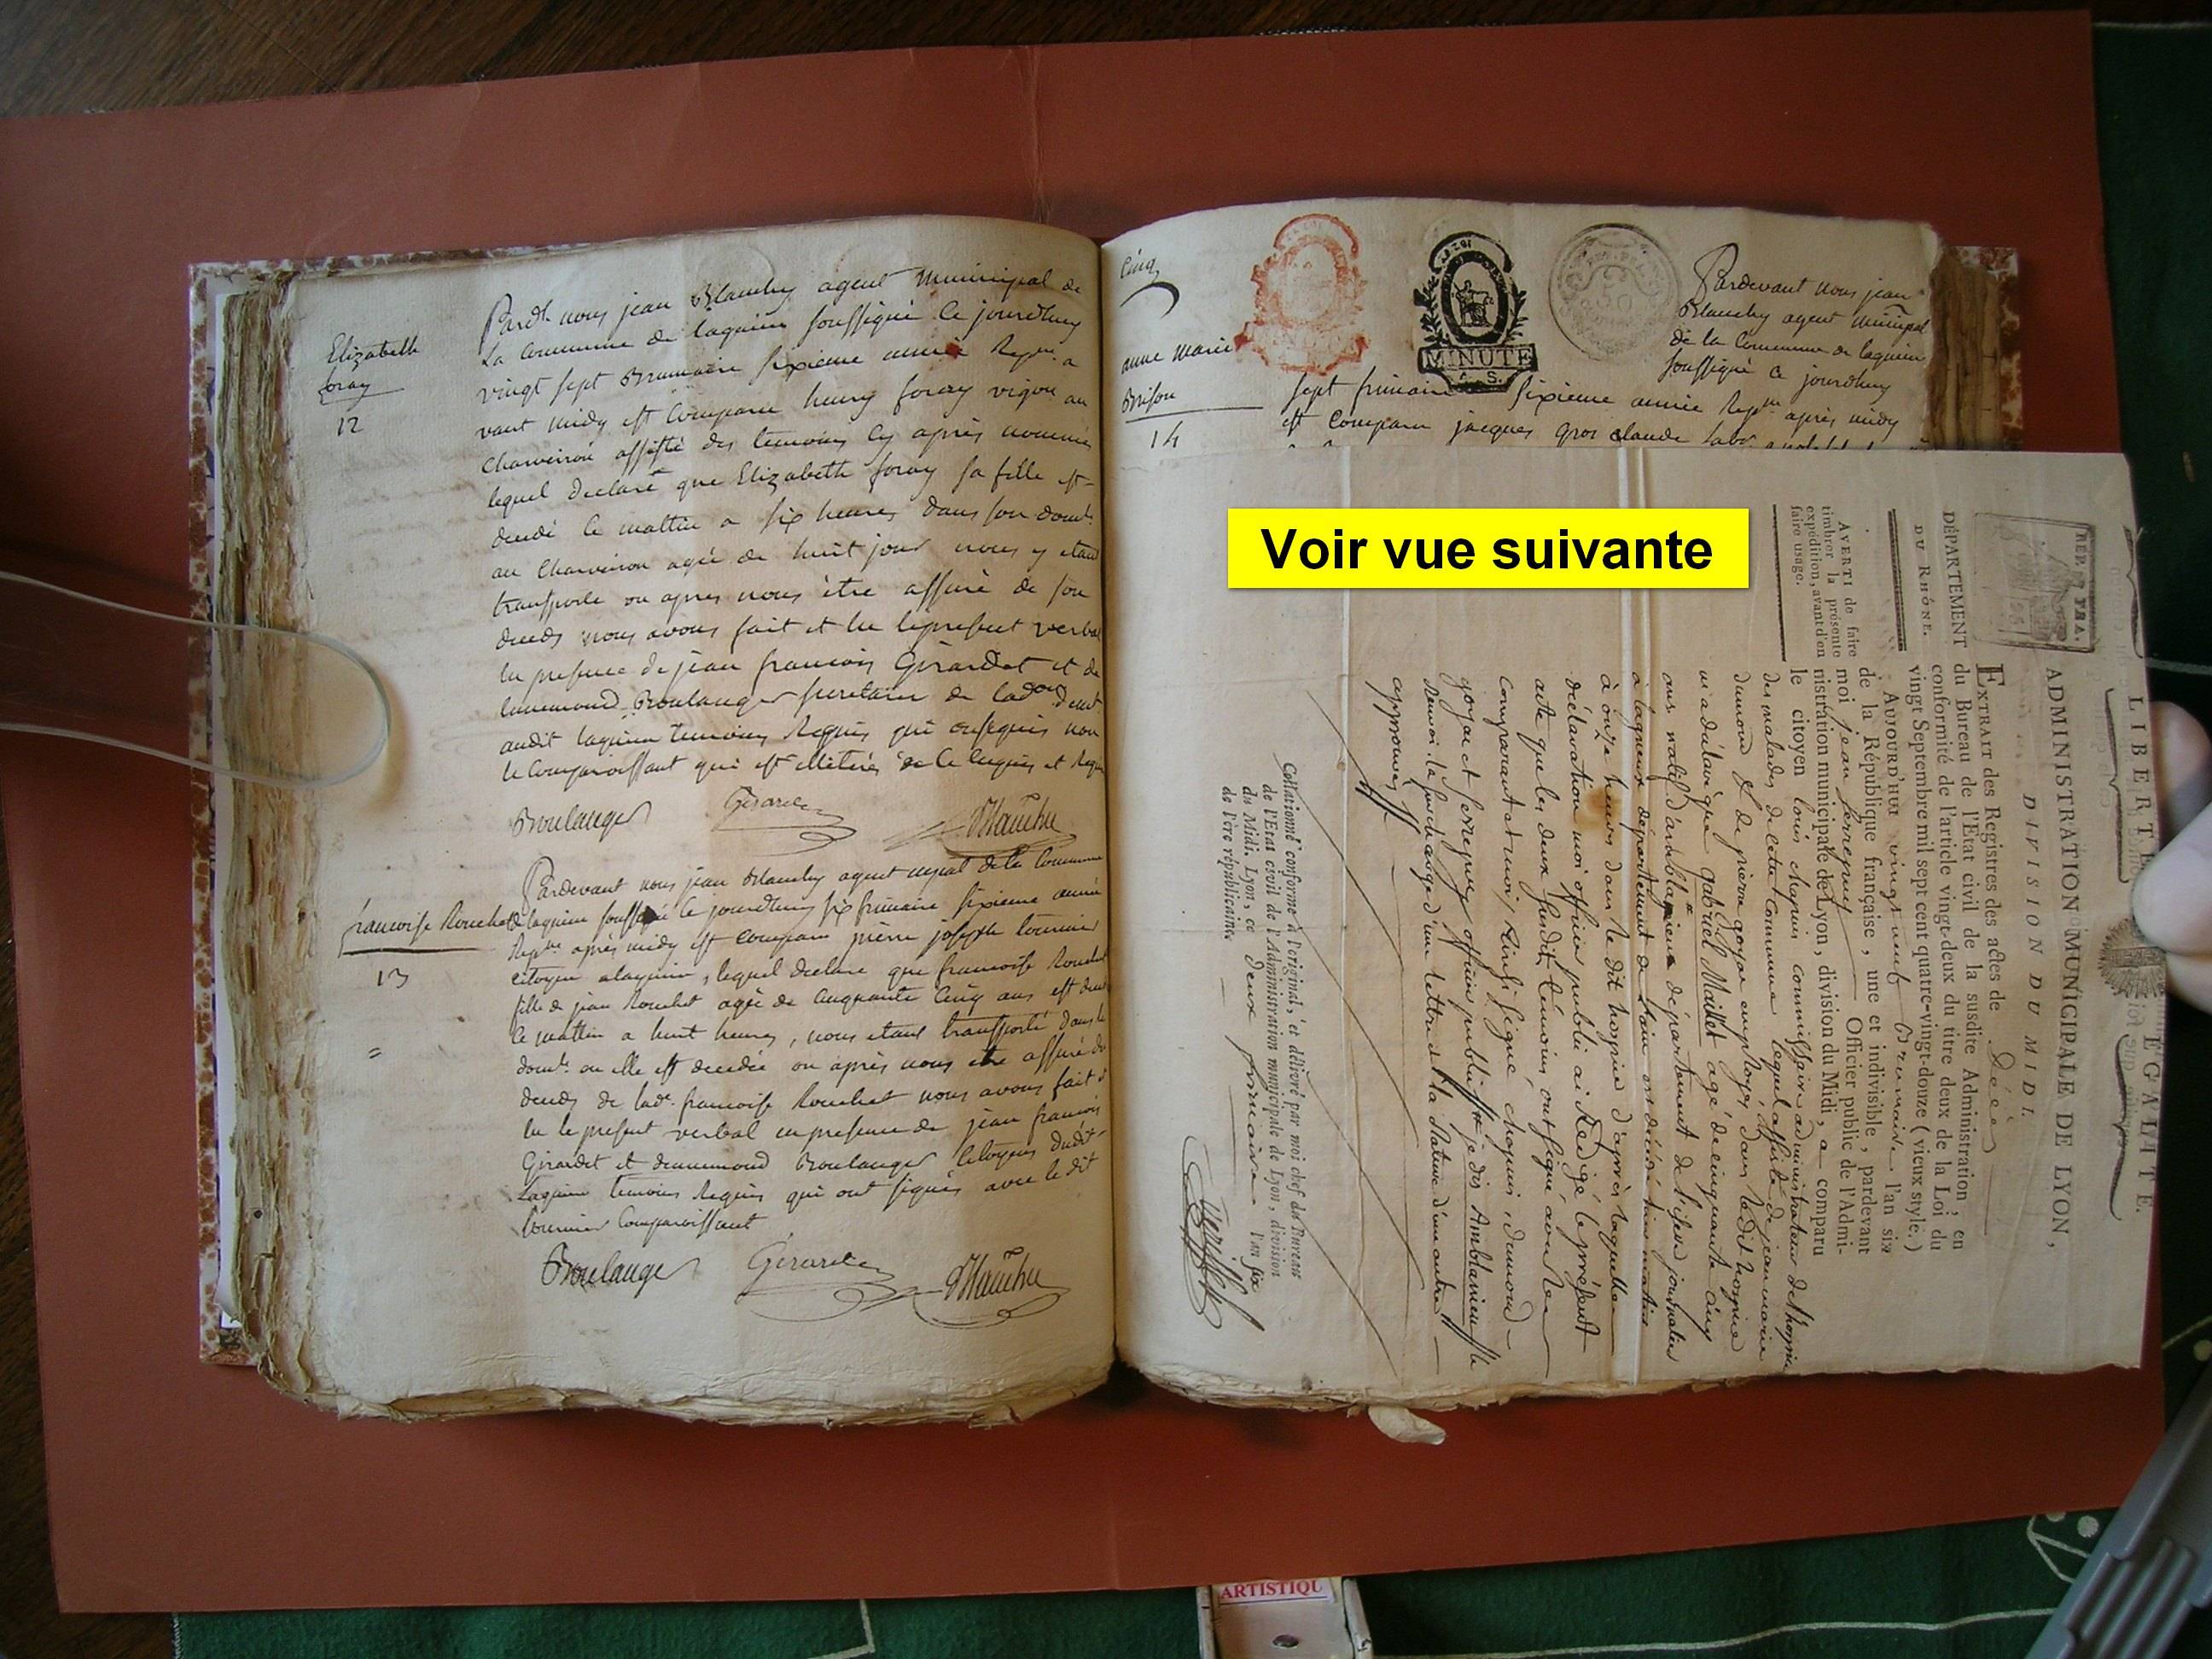 Elizabeth
foray
12
Pard.t nous jean Blanchy agent municipal de
La Commune de lagnieu soussigné Ce jourdhuy
vingt sept Brumaire sixieme année Rep.ne a
vant midy est Comparu henry foray vigon au
Charveiron assisté des temoins Cy après nommés
lequel declare que Elizabeth foray sa fille est
decedé Ce mattin a six heures dans son domi.
au Charveiron agée de huit jour nous y etant
transporté ou apres nous être assuré de son
deceds nous avons fait et lu lepresent verbal
en presence de jean francois Girardet et de
Boulanger secretaire de
audit lagnieu temoins Requis qui ont signés non
le Comparoissant qui est illiteré de Ce enquis et Requis
Boulanger Girardet Blanchy
francoise Rouchet
13
=
Pardevant nous jean Blanchy agent mpal de la Commune
de lagnieu soussigné le jourdhuy six frimaire sixieme année
Rep.ne après midy est Comparu pierre joseph tournier
citoyen alagnieu, lequel declare que francoise Rouchet
fille de jean Rouchet agée de Cinquante Cinq ans est decedé
Ce mattin a huit heures, nous etant transporté dans le
domi. ou elle est decedée ou après nous etre assuré du
deceds de lad.e francoise Rouchet nous avons fait et
lu le present verbal en presence de jean francois
Girardet et dennemond Boulanger Citoyens dudit
Lagnieu temoins Requis qui ont signés avec le dit
tournier Comparoissant
Boulanger Girardet Blanchy
Cinq
anne marie
Brison
14
MINUTE
A. S.
Pardevant nous jean
Blanchy agent municipal
de la Commune de lagnieu
soussigné Ce jourdhuy
sept frimaire sixieme année Rep.ne après midy
est Comparu jacques gros claude labo.r
Voir vue suivante
LIBERTÉ ÉGALITÉ.
ADMINISTRATION MUNICIPALE DE LYON,
DIVISION DU MIDI.
REP. FRA.
DÉPARTEMENT
DU RHÔNE.
AVERTI de faire
timbrer la présente
expédition, avant d'en
faire usage.
EXTRAIT des Registres des actes de Décès
du Bureau de l'Etat civil de la susdite Administration, en
conformité de l'article vingt-deux du titre deux de la Loi du
vingt Septembre mil sept cent quatre-vingt-douze (vieux style.)
AUJOURD'HUI vingt neuf Brumaire l'an six
de la République française, une et indivisible, pardevant
moi jean Officier public de l'Admi-
nistration municipale de Lyon, division du Midi, a comparu
le citoyen louis Chapuis commissaire administrateur de l'hospice
des malades de cette Commune lequel assisté de jean marie
dumond & de pierre goyon employés dans le dit hospice
m'a déclaré que gabriel Maillet agé de cinquante cinq
ans natif d'amblagnieu département de l'isère journalier
à lagnieu département de l'ain est décédé hier matin
à onze heures dans le dit hospice d'après laquelle
déclaration moi officier public ai Rédigé le présent
acte que les deux susdits témoins ont signé avec le
comparant et moi, ainsi signé, chapuis, dumond
goyon et officier public je dis Amblagnieu
approuvés
Collationné conforme à l'original, et délivré par moi chef du Bureau
de l'Etat civil de l'Administration municipale de Lyon, division
du Midi. Lyon, ce deux frimaire l'an six
de l'ère républicaine
ARTISTIQU